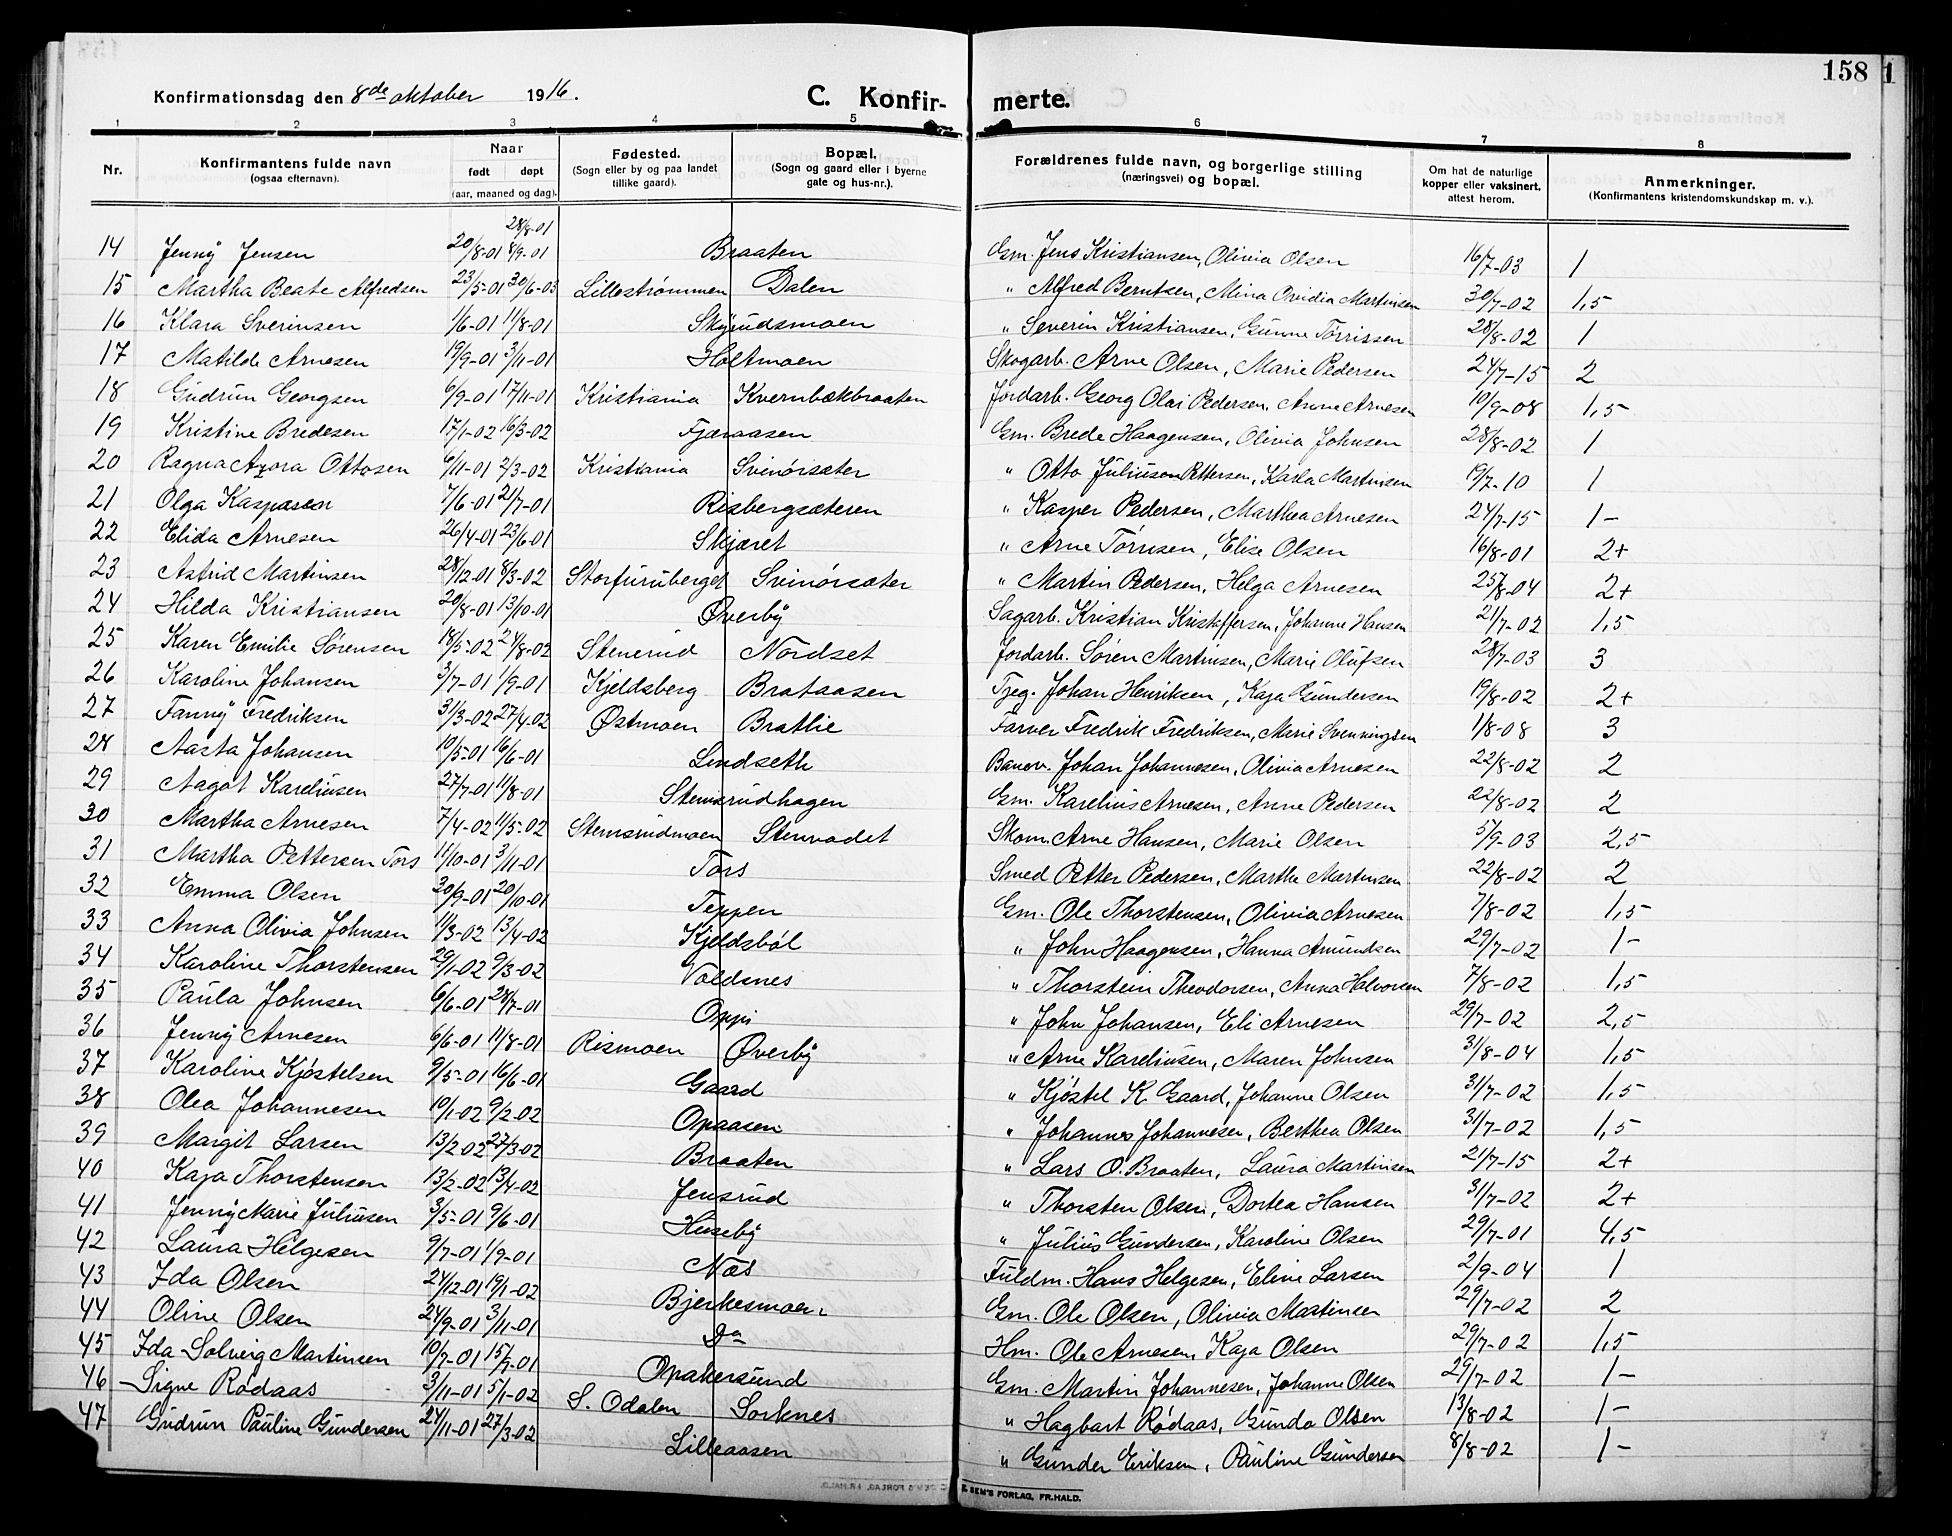 158 1
Konfirmationsdag den 8de oktober 1916. C. Konfir- merte.
1 2 3 4 5 6 7 8
Nr. Konfirmantens fulde navn (ogsaa efternavn). Naar født døpt (aar, maaned og dag). Fødested. (Sogn eller by og paa landet tillike gaard). Bopæl. (Sogn og gaard eller i byerne gate og hus-nr.). Forældrenes fulde navn, og borgerlige stilling (næringsvei) og bopæl. Om hat de naturlige kopper eller vaksinert, attest herom. Anmerkninger. (Konfirmantens kristendomskundskap m. v.).
14 Jenny Jensen 20/8-01 28/8-01 8/9-01 Braaten Gm. Jens Kristiansen, Olivia Olsen 16/7-03 1
15 Martha Beate Alfredsen 23/5-01 30/6-03 Lillestrømmen Dalen " Alfred Berntsen, Mina Ovidia Martinsen 30/7-02 1,5
16 Klara Sverinsen 1/6-01 11/8-01 Skyrudsmoen " Severin Kristiansen, Gunne Tørrissen 28/8-02 1
17 Matilde Arnesen 19/9-01 3/11-01 Holtmoen Skogarb. Arne Olsen, Marie Pedersen 24/7-15 2
18 Gudrun Georgsen 6/9-01 17/11-01 Kristiania Kvernbækbraaten Jordarb. Georg Olai Pedersen, Anne Arnesen 10/9-08 1,5
19 Kristine Bredesen 17/1-02 16/3-02 Fjæraasen Gm. Brede Haagensen, Olivia Johnsen 28/8-02 1
20 Ragna Azora Ottosen 6/11-01 2/3-02 Kristiania Svinöisæter " Otto Juliuson Pettersen, Karla Martinsen 19/7-10 1
21 Olga Kaspersen 7/6-01 21/7-01 Risbergsæteren " Kasper Pedersen, Marthea Arnesen 24/7-15 1-
22 Elida Arnesen 26/4-01 23/6-01 Skjæret " Arne Tørrisen, Elise Olsen 16/8-01 2+
23 Astrid Martinsen 28/12-01 8/3-02 Storfuruberget Svinöisæter " Martin Pedersen, Helga Arnesen 25/8-04 2+
24 Hilda Kristiansen 20/8-01 13/10-01 Øverby Sagarb. Kristian Kristoffersen, Johanne Hansen 21/7-02 1,5
25 Karen Emilie Sørensen 18/5-02 24/8-02 Stenerud Nordset Jordarb. Søren Martinsen, Marie Olufsen 28/7-03 3
26 Karoline Johansen 3/7-01 1/9-01 Kjeldsberg Brataasen Tjeg. Johan Henriksen, Kaja Gundersen 19/8-02 2+
27 Fanny Fredriksen 31/3-02 27/4-02 Østmoen Bratlie Farver Fredrik Fredriksen, Marie Svenningsen 1/8-08 3
28 Aasta Johansen 10/5-01 16/6-01 Lindseth Banev. Johan Johannesen, Olivia Arnesen 22/8-02 2
29 Aagot Kareliusen 27/7-01 11/8-01 Stemsrudhagen Gm. Karelius Arnesen, Anne Pedersen 22/8-02 2
30 Martha Arnesen 7/4-02 11/5-02 Stemsrudmoen Stenvadet Skom. Arne Hansen, Marie Olsen 5/9-03 2,5
31 Martha Pettersen Tors 11/10-01 3/11-01 Tors Smed Petter Pedersen, Marthe Martinsen 22/8-02 2
32 Emma Olsen 30/9-01 20/10-01 Teppen Gm. Ole Thorstensen, Olivia Arnesen 7/8-02 1,5
33 Anna Olivia Johnsen 11/3-02 13/4-02 Kjeldsböl " John Haagensen, Hanna Amundsen 29/7-02 1-
34 Karoline Thorstensen 29/1-02 9/3-02 Voldsnes " Thorstein Theodorsen, Anna Halvorsen 7/8-02 1,5
35 Paula Johnsen 6/6-01 28/7-01 Oppi " John Johansen, Eli Arnesen 29/7-02 2,5
36 Jenny Arnesen 6/6-01 11/8-01 Rismoen Øverby " Arne Kareliusen, Maren Johnsen 31/8-04 1,5
37 Karoline Kjøstelsen 9/5-01 16/6-01 Gaard " Kjøstel K. Gaard, Johanne Olsen 31/7-02 1,5
38 Olea Johannesen 10/1-02 9/2-02 Opaasen " Johannes Johannesen, Berthea Olsen 31/7-02 1,5
39 Margit Larsen 13/2 02 27/3-02 Braaten " Lars O. Braaten, Laura Martinsen 21/7-15 2+
40 Kaja Thorstensen 13/2-02 13/4-02 Jensrud " Thorsten Olsen, Dortea Hansen 31/7-02 2+
41 Jenny Marie Juliusen 3/5-01 9/6-01 Huseby " Julius Gundersen, Karoline Olsen 29/7-01 4,5
42 Laura Helgesen 9/7-01 1/9-01 Næs Fuldm. Hans Helgesen, Eline Larsen 2/9-04 1
43 Ida Olsen 24/12-01 19/1-02 Bjerkesmoen Gm. Ole Olsen, Olivia Martinsen 29/7-02 2
44 Oline Olsen 24/9-01 3/11-01 Do Hm. Ole Arnesen, Kaja Olsen 29/7-02 1,5
45 Ida Solveig Martinsen 10/7-01 15/7-01 Opakersund Gm. Martin Johannesen, Johanne Olsen 29/7-02 1-
46 Signe Rødaas 3/11-01 5/1-02 S. Odalen Sorknes " Hagbart Rødaas, Gunda Olsen 13/8-02 1-
47 Gudrun Pauline Gundersen 24/11-01 27/3-02 Lilleaasen " Gunder Eriksen, Pauline Gundersen 8/8-02 1-
E. SEM'S FORLAG, FR.HALD.